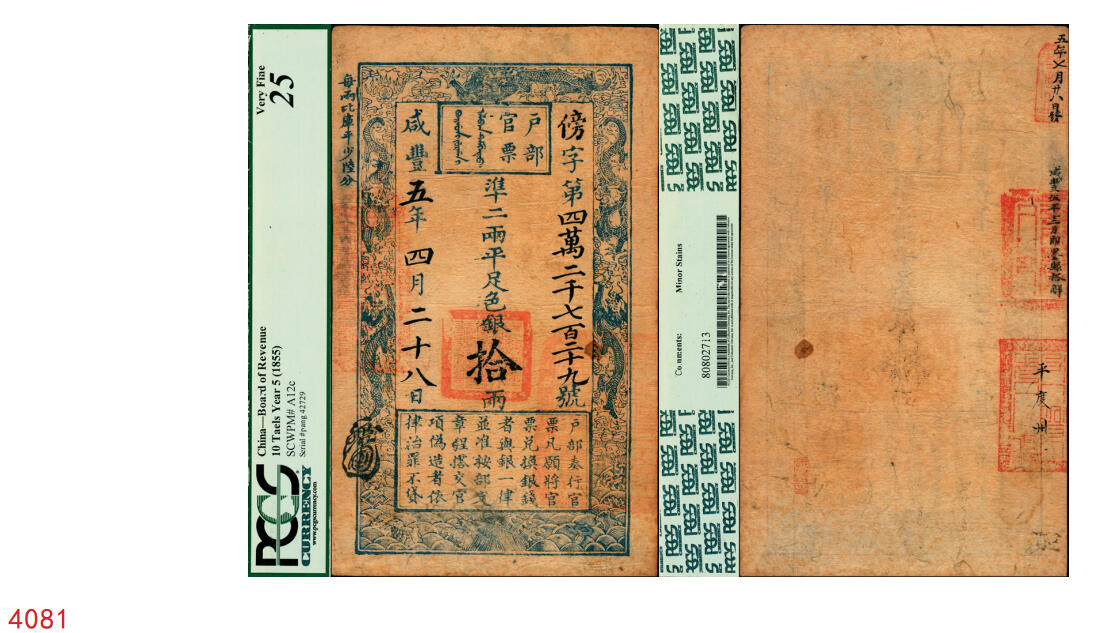 Very Fine
25
China—Board of Revenue
10 Taels Year 5 (1855)
SCWPM# A12c
Serial #pang 42729
PCGS
CURRENCY
www.pcgscurrency.com
每兩比庫平少陸分
戶部
官票
傍字第四萬二千七百二十九號
準二兩平足色銀拾兩
咸豐五年四月二十八日
戶部奏行官
票凡願將官
票兌換銀錢
者與銀一律
並准按部定
章程搭交官
項偽造者依
律治罪不貸
Comments:
Minor Stains
80802713
五年七月廿八日
平度州
4081